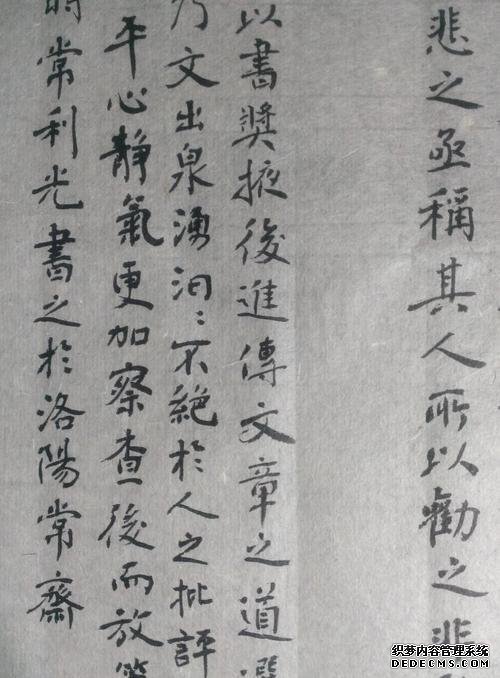 悲之亟稱其人所以勸之非
以書奬掖後進傳文章之道
乃文出泉湧汩〻不絕於人之批評
平心靜氣更加察查後而放
時常利光書之於洛陽常齋
织梦内容管理系统
DEDECMS.COM